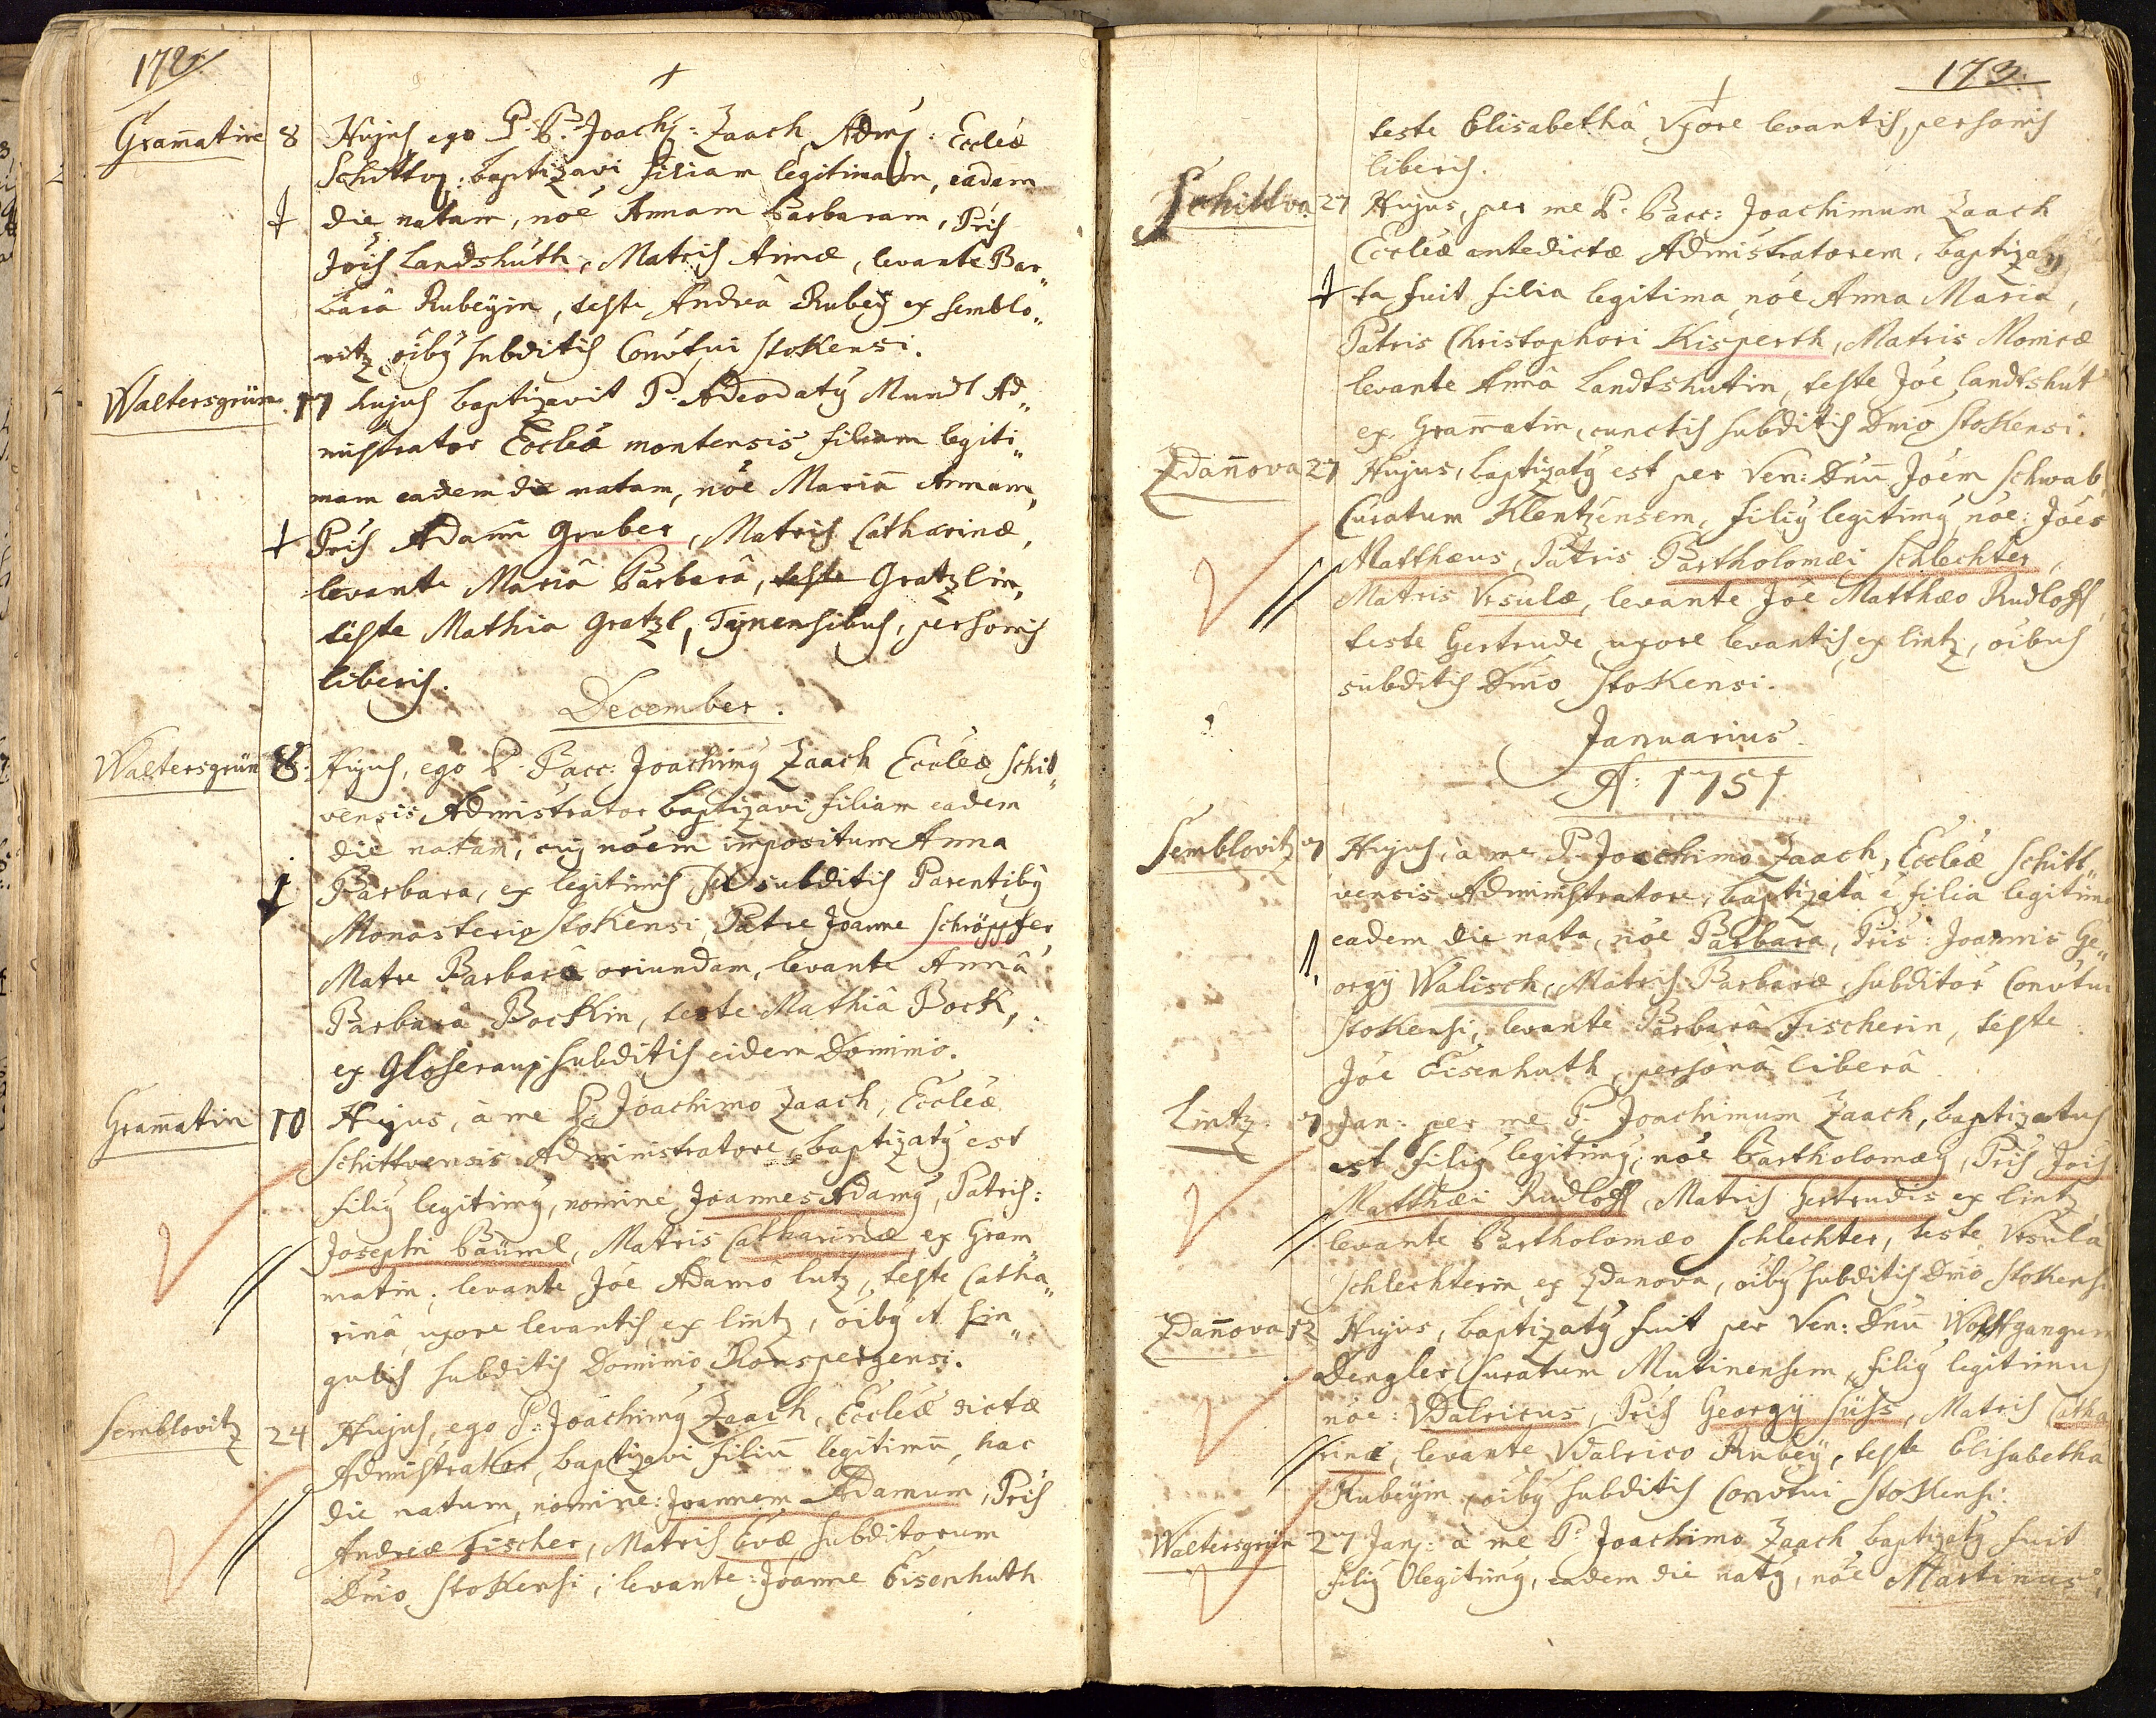 172.
Gram̅atin 8 Hujus, ego P. B. Joach: Zaach, Admi: Eccleæ
Schittv: baptizavi filiam legitimam, eadem
die natam, nõe Annam Barbaram, Pris
Jois Landshuth, Matris Annæ, levante Bar„
bara Rubeÿin, teste Andrea Rubeÿ ex Semblo„
vitz oibꝯ subditis Convtui Stokensi.
Waltersgrün 17 hujus baptizavit P. Adeodatꝯ Mundl Ad„
mistrator Eccleæ montensis filiam legiti„
mam eadem die natam, nõe Mariam̅ Annam,
Pris Adami Gruber, Matris Catharinæ,
levante Mariâ Barbarâ, teste Gratzlin,
teste Mathia Gratzl, Tÿnensibus, personis
liberis.
December.
Waltersgrün 8. Hujus, ego P. Bacc: Joachimꝯ Zaach Eccleæ Schit„
vensis Administrator baptizavi filiam eadem
die natam, cui nõem impositum Anna
Barbara, ex legitimis et subditis Parentibꝯ
Monasterio Stokensi, Patre Joanne Schröpfer,
Matre Barbarâ oriundam, levante Annâ
Barbarâ Bockin, teste Mathiâ Bock,
ex Gloserau, subditis eidem Dominio.
Gram̅atin 10 Hujus, à me P. Joachimo Zaach, Eccleæ
Schittvensis Administratore, baptizatꝯ est
filiꝯ legitimꝯ, nomine Joannes Adamꝯ, Patris:
Josephi Bäuml, Matris Catharinæ ex Gram„
matin; levante Jõe Adamo Lutz, teste Catha„
rinâ uxore levantis ex Lintz, oibꝯ et sin„
gulis subditis Dominio Ronspergensi.
Semblovitz 24 Hujus, ego P: Joachimꝯ Zaach, Eccleæ dictæ
Administrator, baptizavi filiu̅ legitimu̅, hac
die natum, nomine: Joannem Adamum, Pris
Andreæ Fischer, Matris Evæ subditorum
Dnio Stokensi; levante: Joanne Eisenhuth
173.
teste Elisabethâ Uxore levantis, personis
liberis.
Schittva 27 Hujus, per me P. Bacc: Joachimum Zaach
Eccleæ antedictæ Administratorem, baptiza„
ta fuit filia legitima nõe Anna Maria,
Patris Christophori Kisperth, Matris Monicæ
levante Annâ Landtshutin, teste Jõe Landtshut
ex Gram̅atin, cunctis subditis Dnio Stokensi.
Zdan̅ova 27 Hujus, baptizatꝯ est per Ven: Dnu̅ Joem Schwab,
Curatum Klentzensem, filiꝯ legitimꝯ nõe: Joes
Matthæus, Patris Bartholomæi Schlechter,
Matris Ursulæ, levante Jõe Matthæo Rudloff,
teste Gertrude uxore levantis ex Lintz, oibus
subditis Dnio Stokensi.
Januarius.
A: 1751
Semblovitz 7 Hujus, à me P. Joachimo Zaach, Eccleæ Schitt„
vensis Administratore, baptizata ẽ filia legitima
eadem die nata, nõe Barbara, Pris: Joannis Ge„
orgÿ Walisch, Matris Barbaræ, subditor̃ Convtui
Stokensi, levante Barbarâ Fischerin, teste
Jõe Eisenhuth, personâ liberâ.
Lintz. 7 Jan: per me P. Joachimum Zaach, baptizatus
est filiꝯ legitimꝯ, nõe Bartholomæꝯ, Pris Jois
Matthæi Rudloff, Matris Gertrudis ex Lintz,
levante Bartholomæo Schlechter, teste Ursula
Schlechterin ex Zdanova, oibꝯ subditis Dnio Stokensi
Zdan̅ova 12 Hujus, baptizatꝯ fuit per Ven: Dnu̅ Wolffgangum
Dengler Curatum Mutinensem, filiꝯ legitimus
nõe: Udalricus, Pris Georgÿ Süss, Matris Catha„
rinæ, levante Udalrico Rubeÿ, teste Elisabetha
Rubeÿin, oibꝯ subditis Convtui Stokensi.
Waltersgrün 27 Janj: à me P. Joachimo Zaach baptizatꝯ fuit
filiꝯ legitimꝯ, eadem die natꝯ, nõe Martinus,